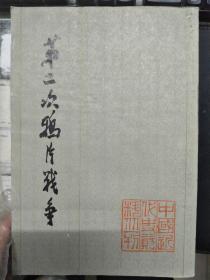 第二次鸦片战争
中國近
代史資
料叢刊